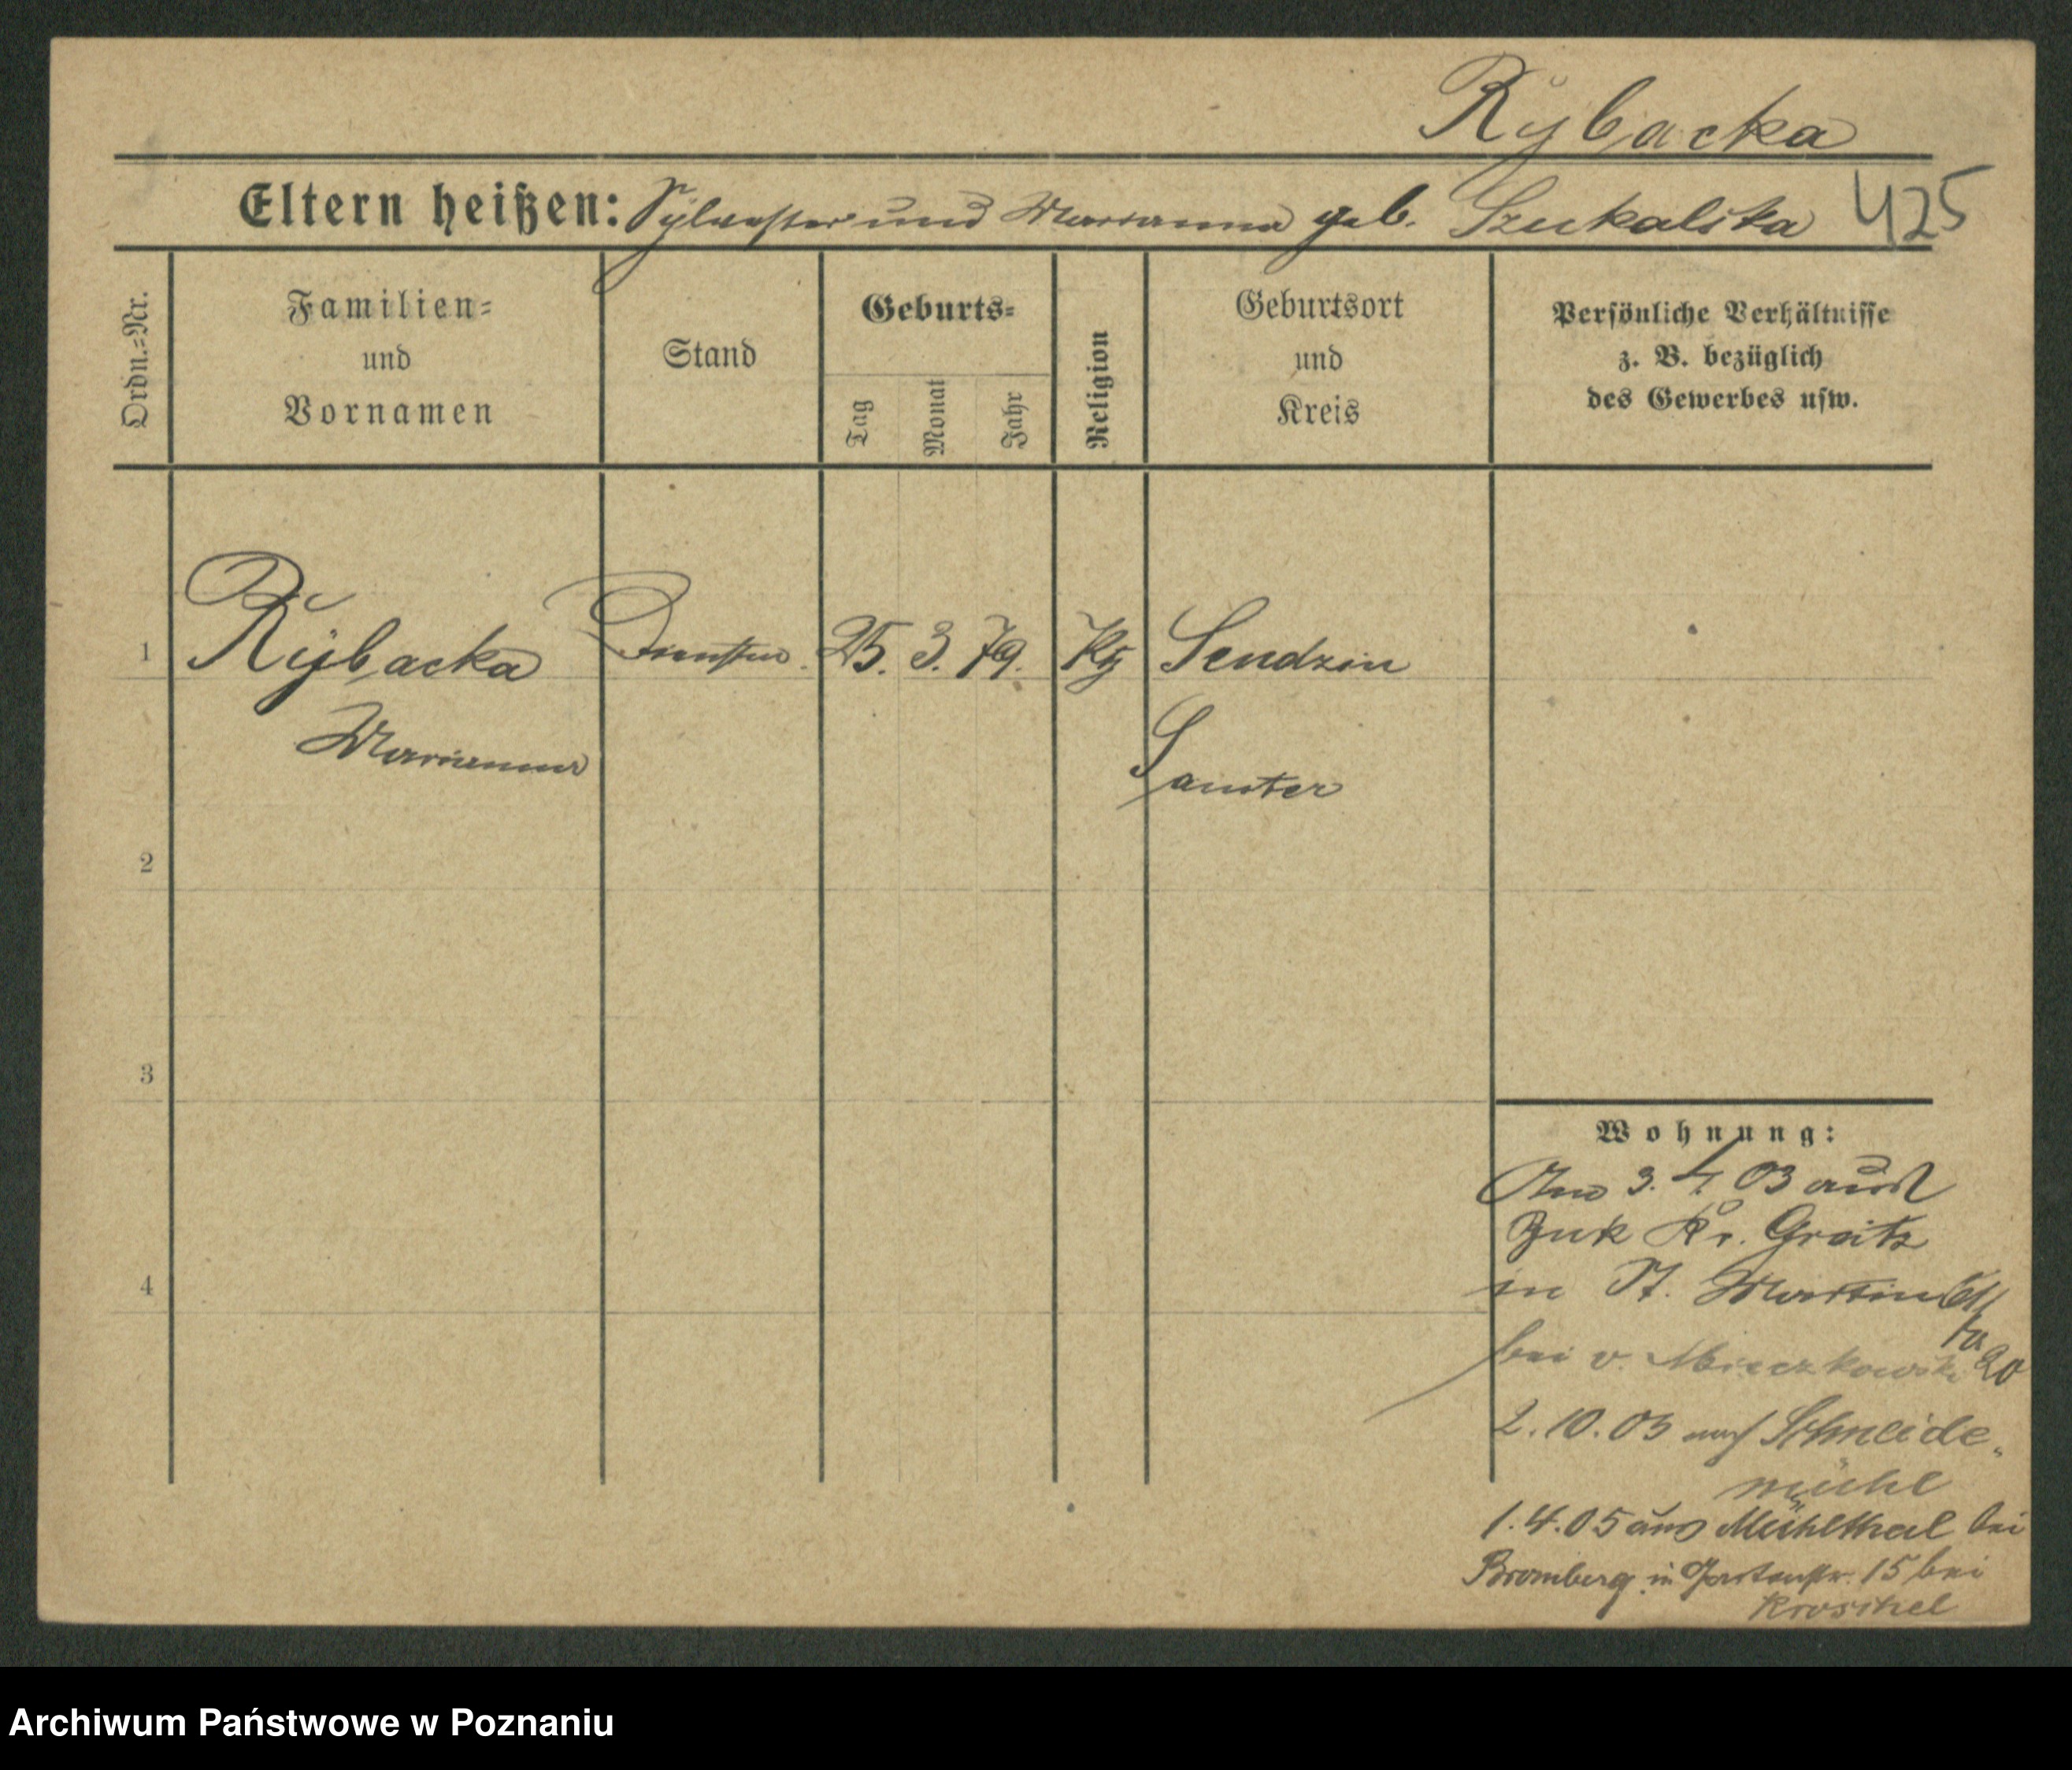 Rybacka
Eltern heißen: Sylvester und Marianna geb. Szukalska 425
Ordn.=Nr.
Familien=
und
Vornamen
Stand
Geburts=
Tag
Monat
Jahr
Religion
Geburtsort
und
Kreis
Persönliche Verhältnisse
z. B. bezüglich
des Gewerbes usw.
1 Rybacka 25. 3. 79. Sendzin
Marianna
Samter
2
3
4
Wohnung:
3. 4. 03 aus
Buk Kr. Graetz
in St. Martin
bei v. Mieczkowski 20
2.10.03 nach Schneide-
mühl
1.4.05 aus Mühlthal bei
Bromberg in Gartenstr. 15 bei